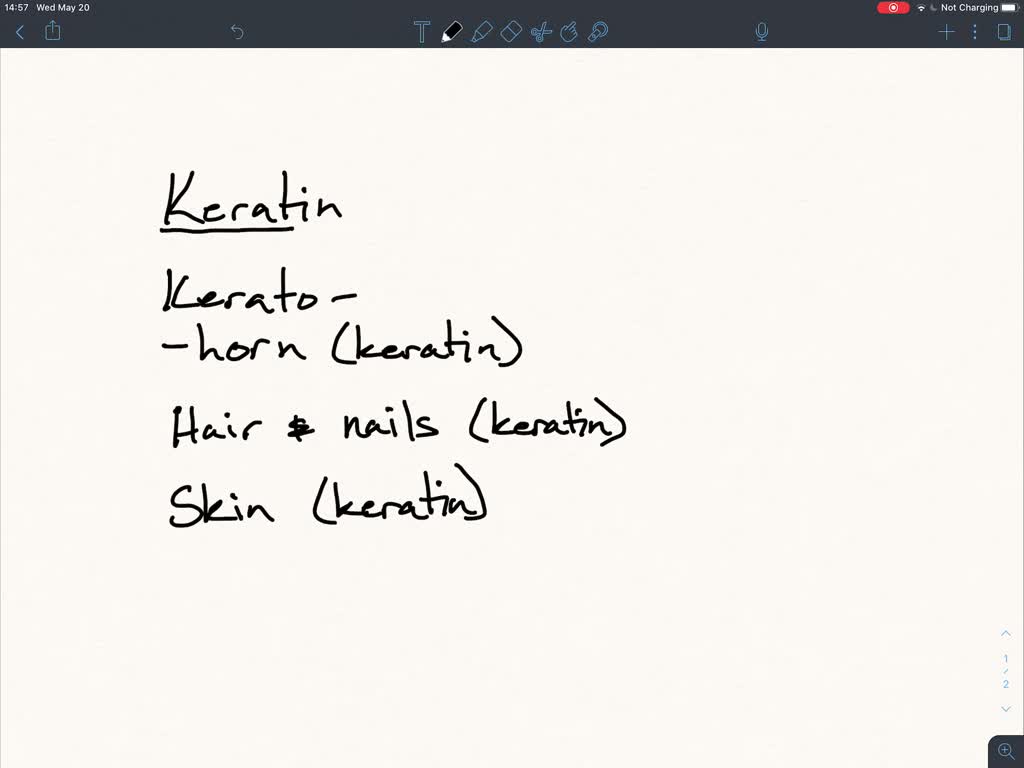 14:57 Wed May 20
Not Charging
T
Keratin
Kerato-
-horn (keratin)
Hair & nails (keratin)
Skin (keratin)
1
/
2